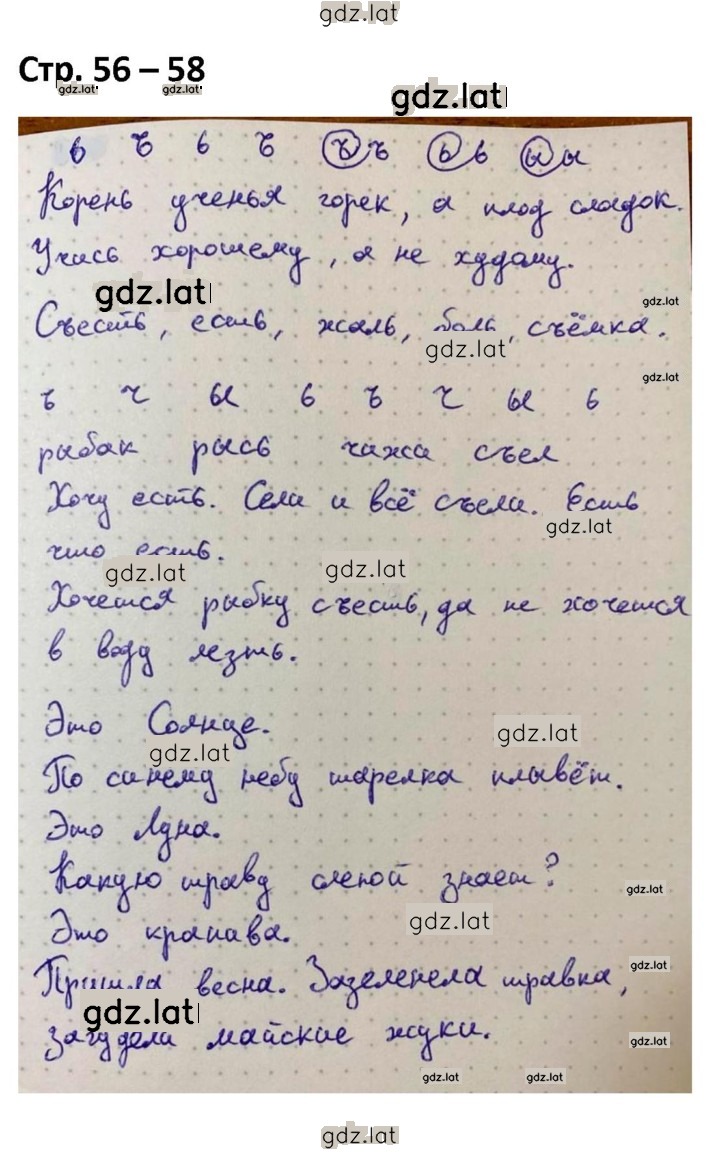 gdz.lat
Стр. 56 – 58
gdz.lat gdz.lat
gdz.lat
ь ъ ь ъ ъ ъ ь ь ы ы
Корень ученья горек, а плод сладок.
Учись хорошему, а не худому.
gdz.lat gdz.lat
Съесть, есть, жаль, боль, съёмка.
gdz.lat
gdz.lat
ъ ч ы ь ъ ч ы ь
рыбак рысь чажа съел
Хочу есть. Сели и всё съели. Есть
gdz.lat
что есть.
gdz.lat gdz.lat
Хочется рыбку съесть, да не хочется
в воду лезть.
Это Солнце.
gdz.lat gdz.lat
По синему небу тарелка плывёт.
Это Луна.
Какую траву слепой знает?
gdz.lat
Это крапива.
gdz.lat
Пришла весна. Зазеленела травка,
gdz.lat
gdz.lat
загудели майские жуки.
gdz.lat
gdz.lat gdz.lat
gdz.lat